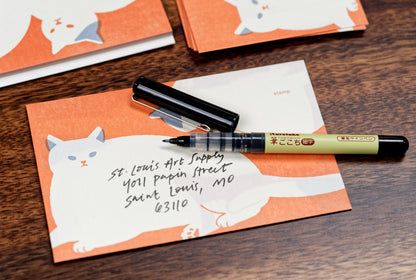 stamp
Kuretake
筆ごこち
St. Louis Art Supply
4011 papin Street
Saint Louis, MO
63110